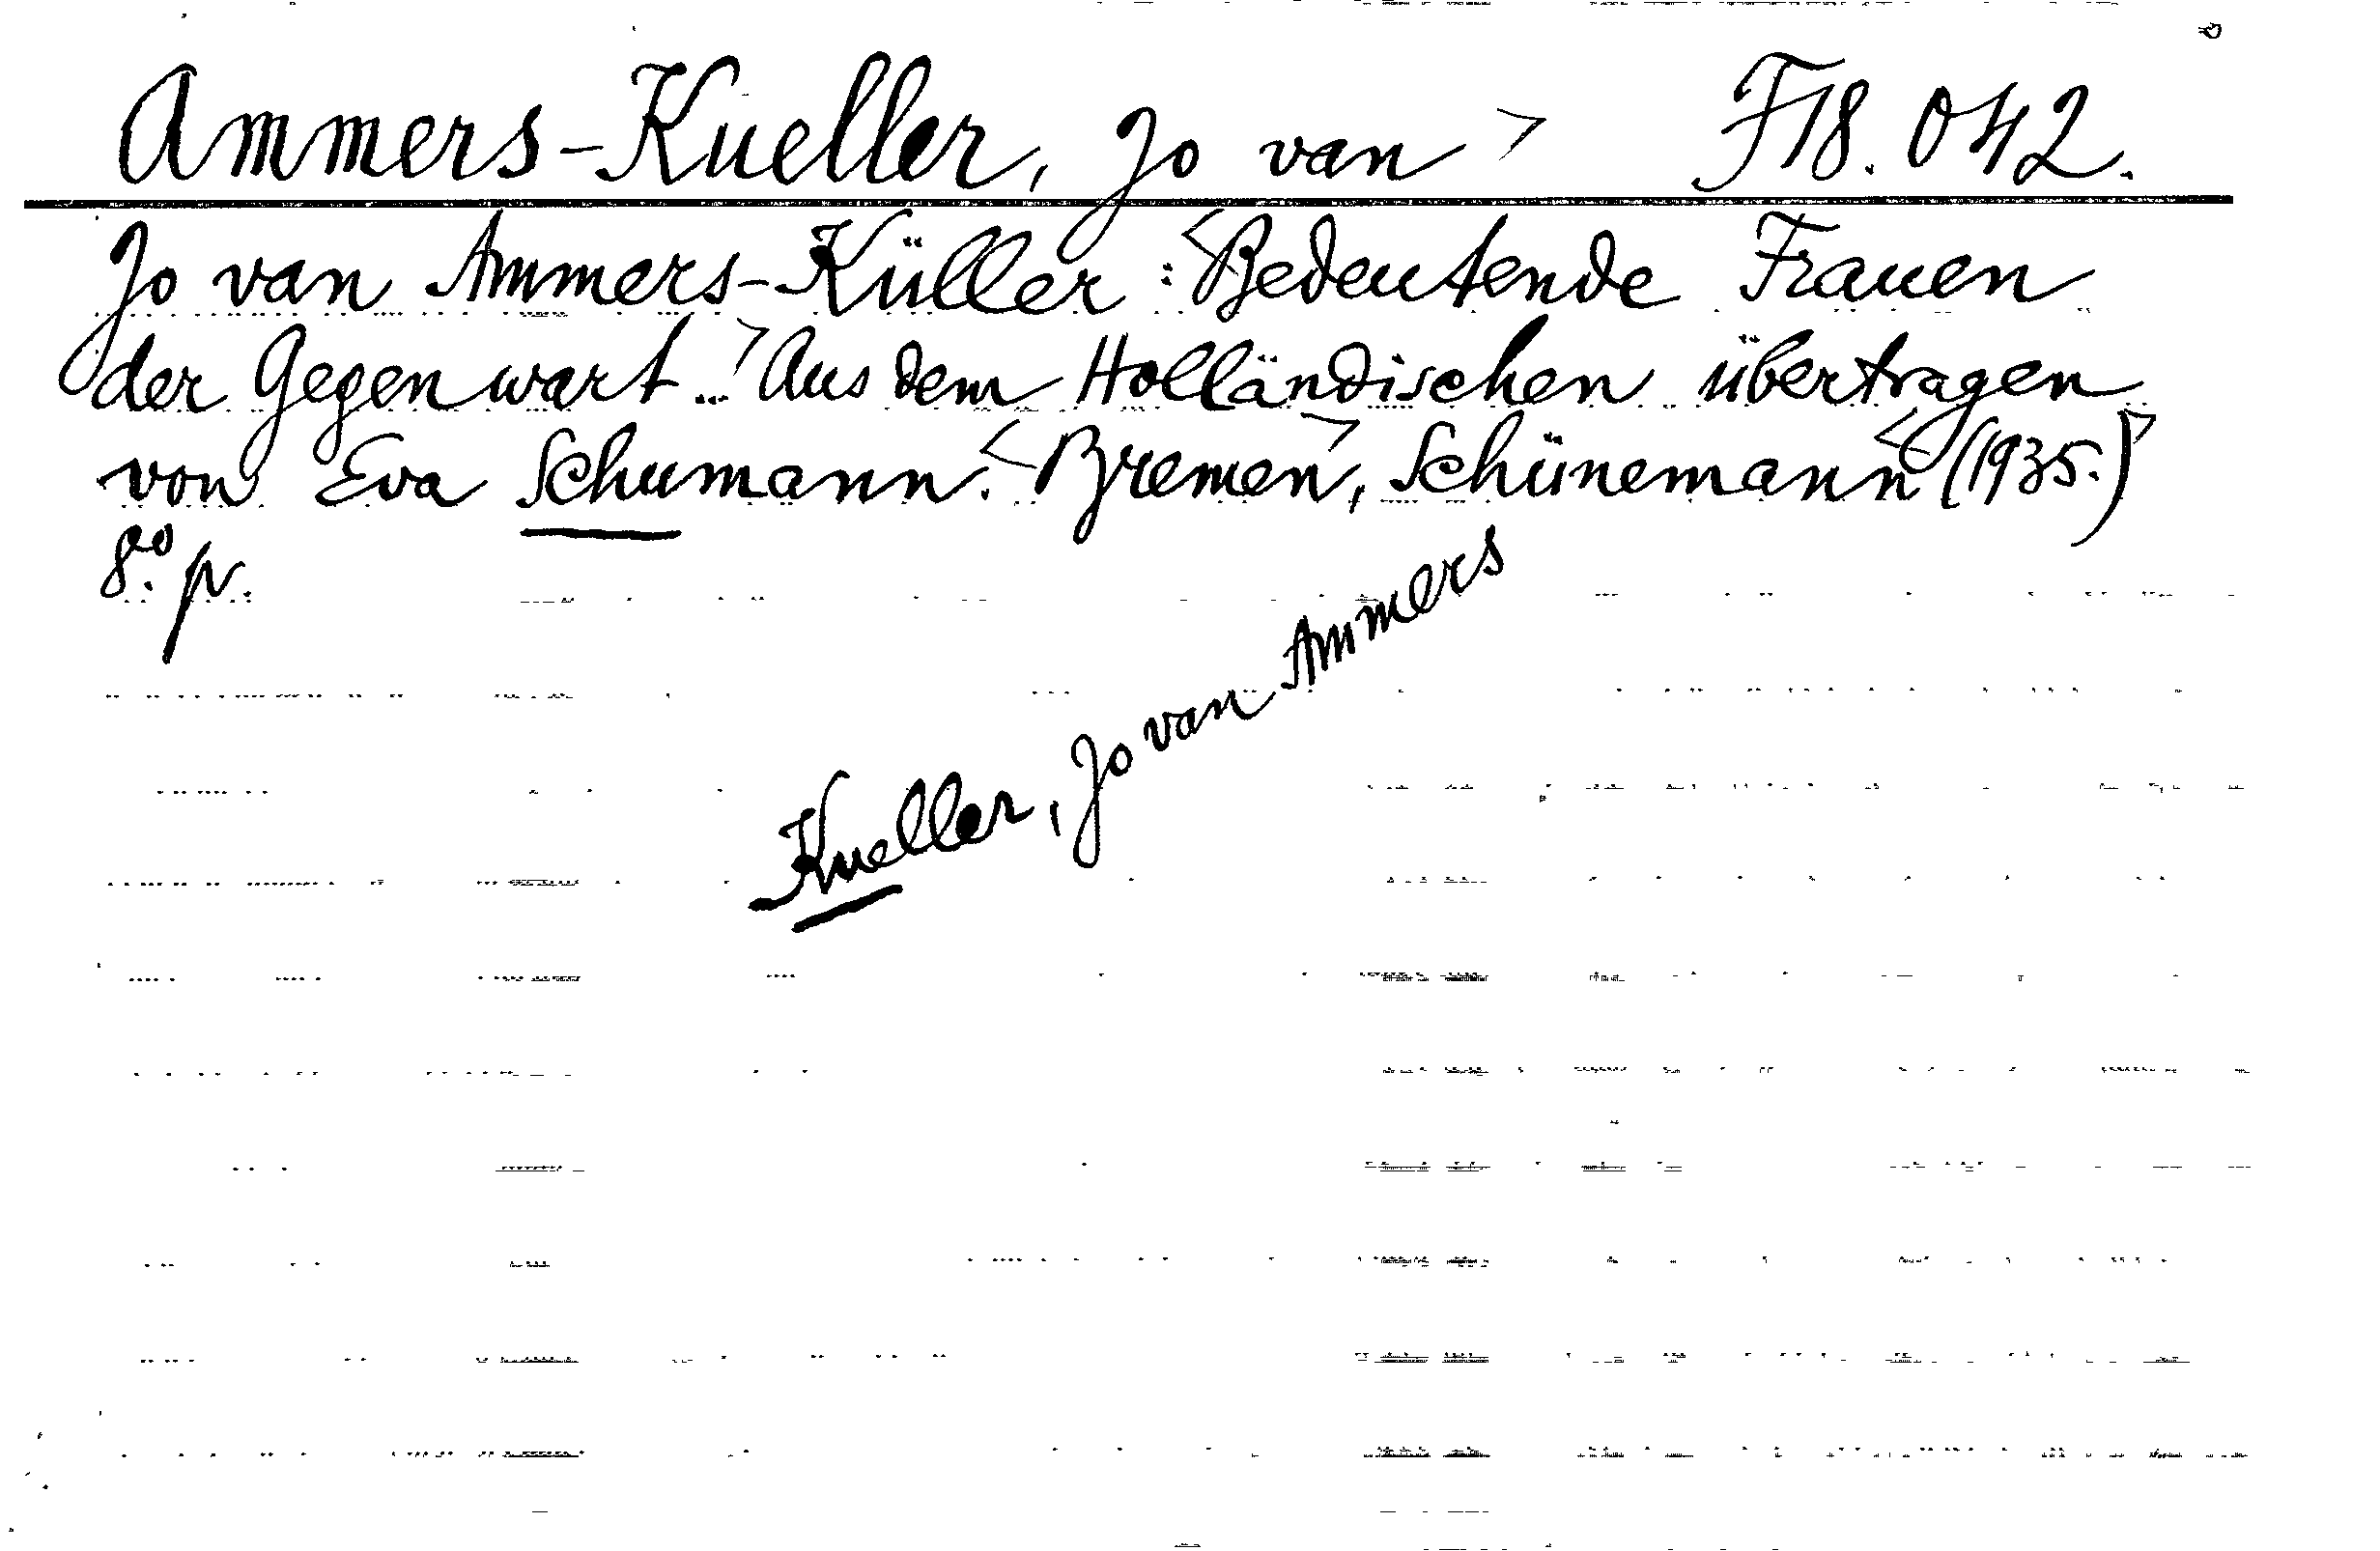 Ammers-Kueller, Jo van > F18.042.
Jo van Ammers-Küller: <Bedeutende Frauen
der Gegenwart...> Aus dem Holländischen übertragen
von Eva Schumann. <Bremen>, Schünemann <(1935.)>
8.° p.
Kueller, Jo van Ammers